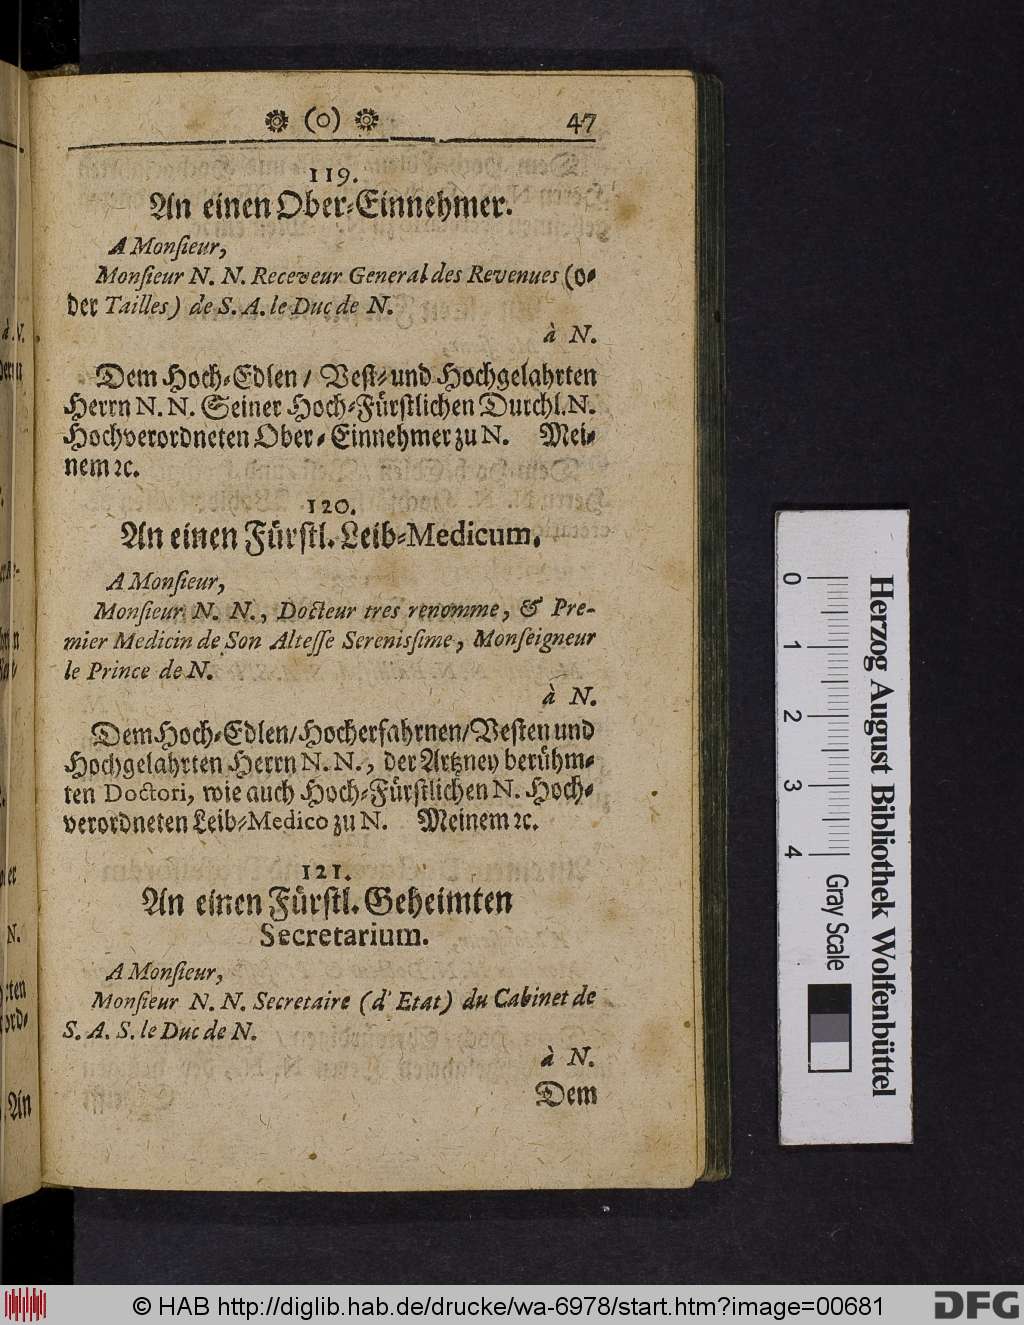 ❁ (o) ❁ 47
119.
An einen Ober⸗Einnehmer.
A Monſieur,
Monſieur N. N. Receveur General des Revenues (o⸗
der Tailles) de S. A. le Duc de N.
à N.
Dem Hoch⸗Edlen / Veſt⸗ und Hochgelahrten
Herrn N. N. Seiner Hoch⸗Fürſtlichen Durchl. N.
Hochverordneten Ober⸗ Einnehmer zu N. Mei⸗
nem ꝛc.
120.
An einen Fürſtl. Leib⸗Medicum.
A Monſieur,
Monſieur N. N., Docteur tres renomme, & Pre-
mier Medicin de Son Alteſſe Sereniſſime, Monſeigneur
le Prince de N.
à N.
Dem Hoch⸗Edlen/Hocherfahrnen/Veſten und
Hochgelahrten Herrn N. N., der Artzney berühm⸗
ten Doctori, wie auch Hoch⸗Fürſtlichen N. Hoch⸗
verordneten Leib⸗Medico zu N. Meinem ꝛc.
121.
An einen Fürſtl. Geheimten
Secretarium.
A Monſieur,
Monſieur N. N. Secretaire (d' Etat) du Cabinet de
S. A. S. le Duc de N.
à N.
Dem
An
0 1 2 3 4
Gray Scale
Herzog August Bibliothek Wolfenbüttel
© HAB http://diglib.hab.de/drucke/wa-6978/start.htm?image=00681
DFG